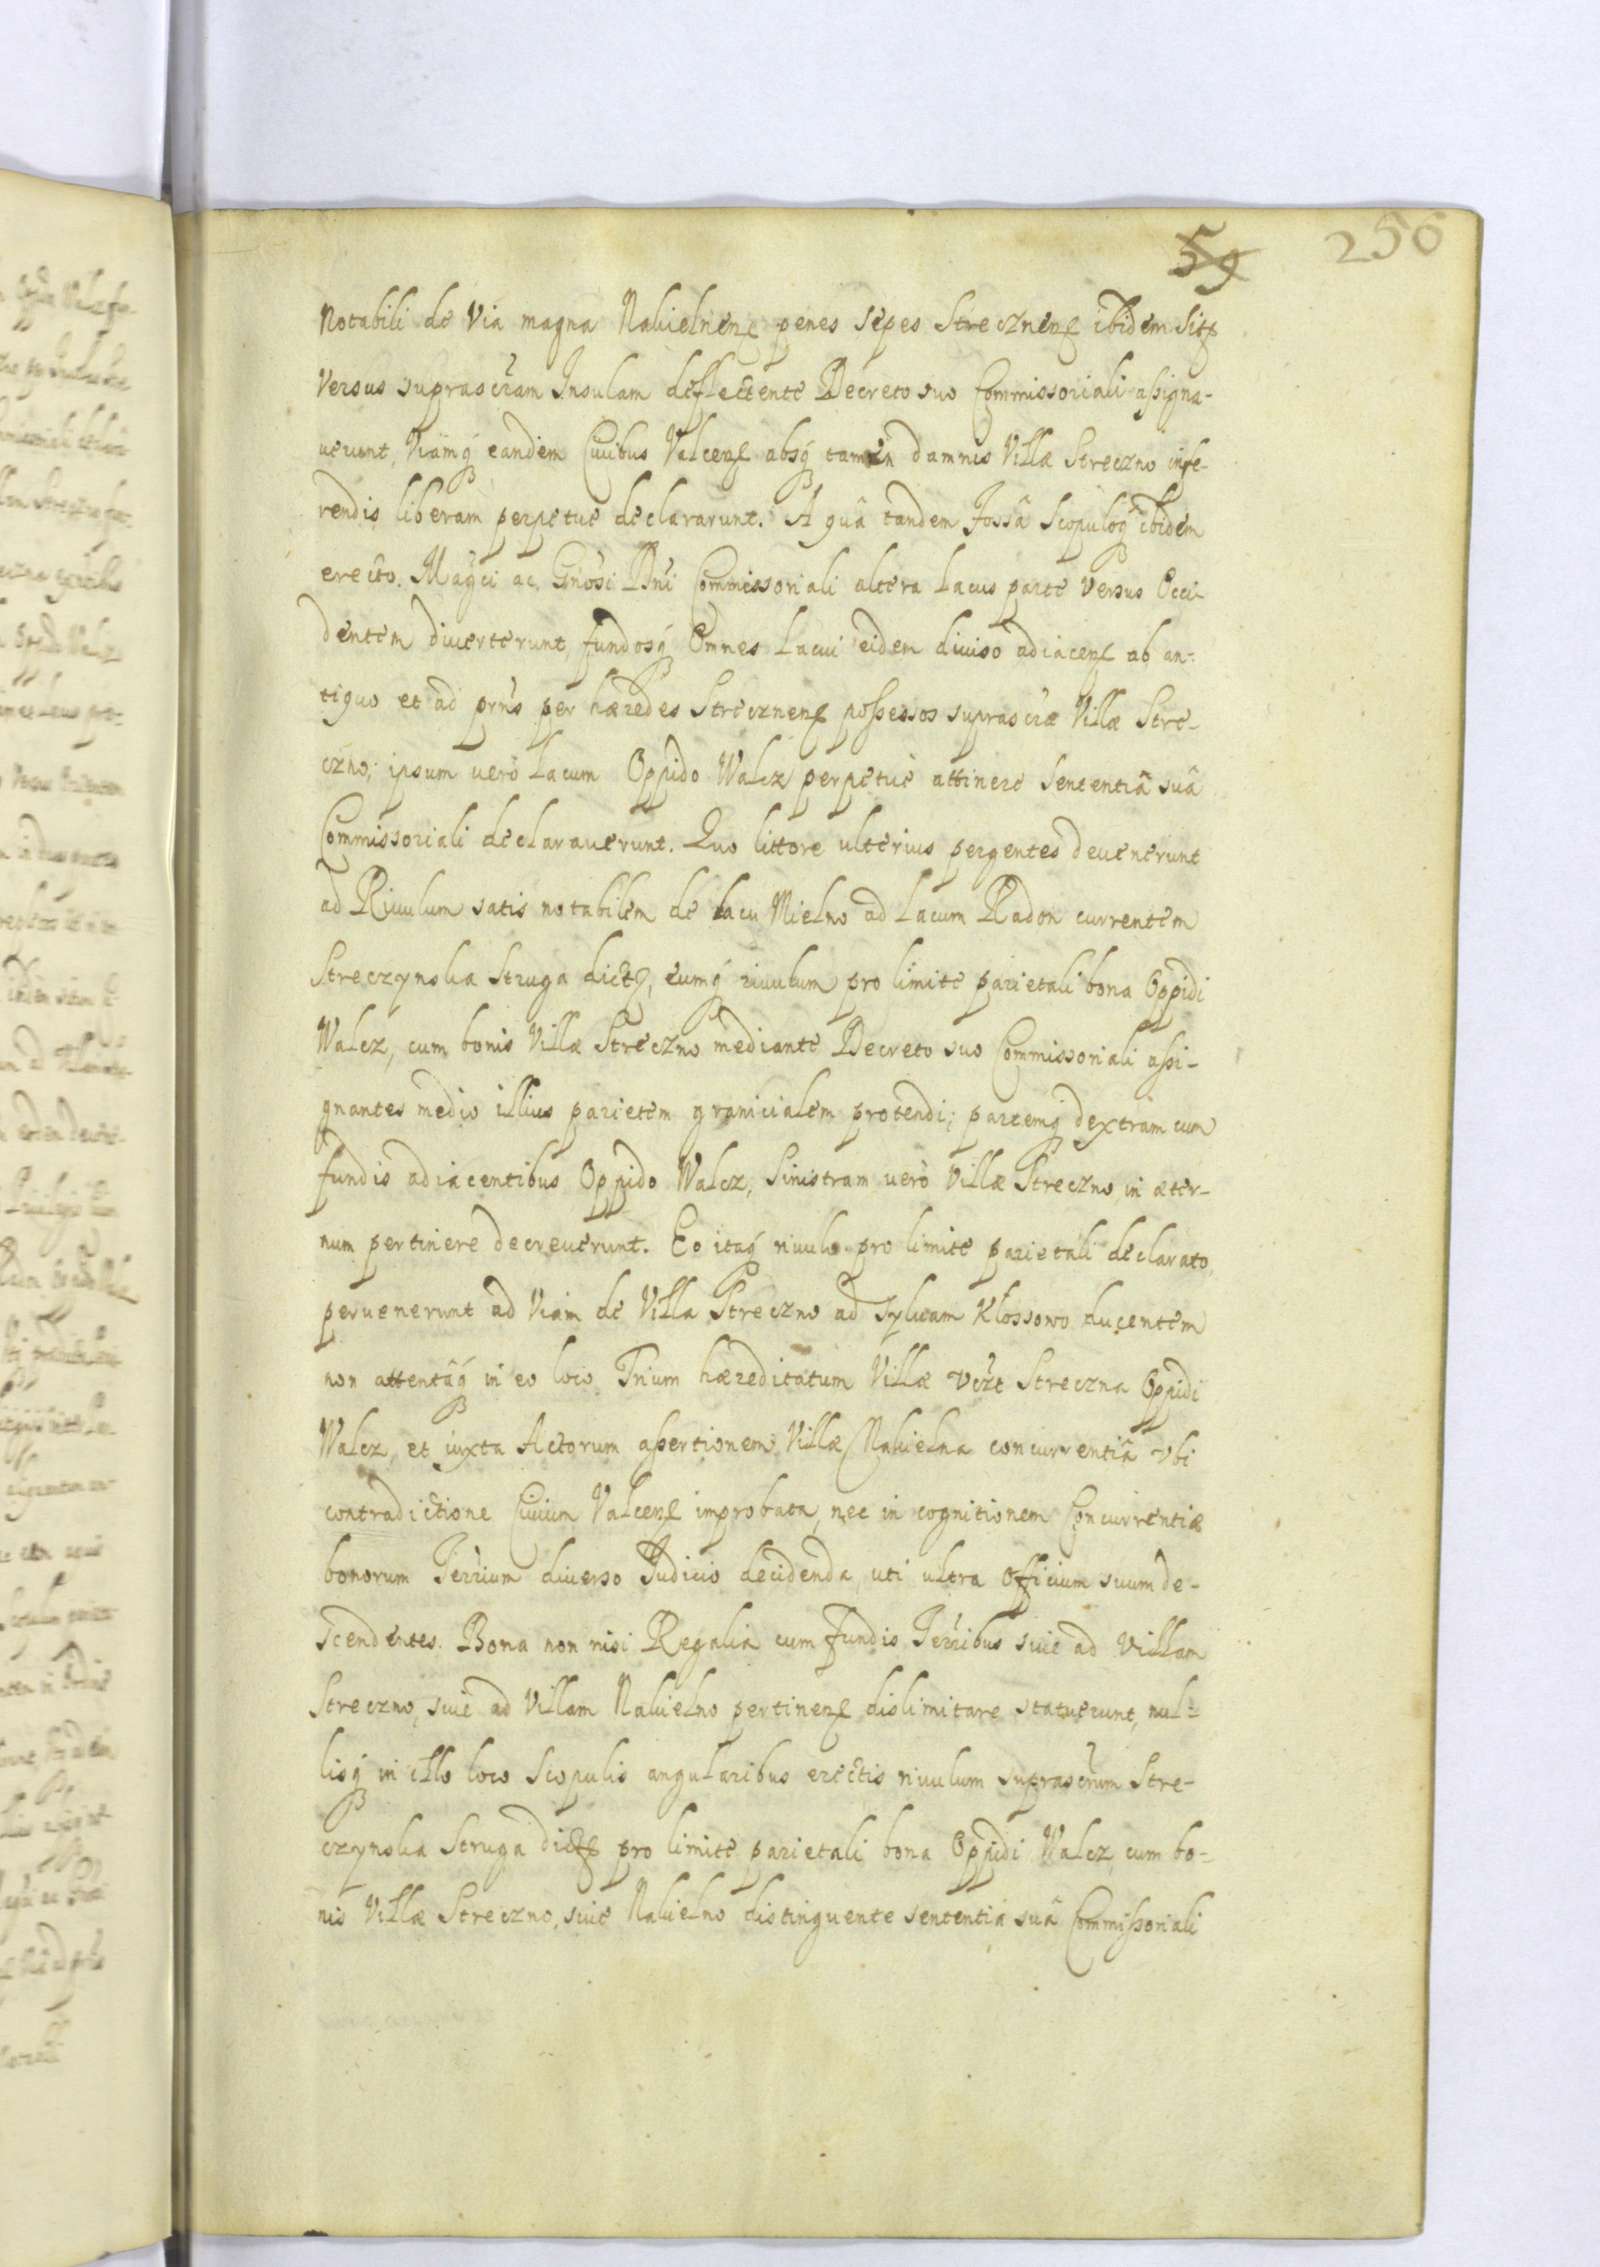 59 256
Notabili de Via magna Nakielnens penes sepes Strecznens ibidem sits
versus suprascřam Insulam deflectente Decreto suo Commissoriali assigna-
uerunt, Viamq eandem Ciuibus Valcens absq tamen damnis Villæ Streczno infe-
rendis liberam perpetue declararunt. A quâ tandem Fossâ Scopuloq ibidem
erecto. Magci ac Gnosi Dni Commissoriali altera Lacus parte versus Occi-
dentem diuerterunt, fundosq Omnes Lacui eidem diuiso adiacens ab an-
tiquo et ad prns per hæredes Strecznens possessos suprascræ Villæ Stre-
czno, ipsum verò Lacum Oppido Walcz perpetuè attinere sententiâ suâ
Commissoriali declarauerunt. Quo littore vlterius pergentes deuenerunt
ad Riuulum satis notabilem de Lacu Mielno ad Lacum Radon currentem
Streczynska Struga dicts, eumq riuulum pro limite parietali bona Oppidi
Walcz, cum bonis Villæ Streczno mediante Decreto suo Commissoriali assi-
gnantes medio illius parietem granicialem protendi; partemq dextram cum
fundis adiacentibus Oppido Walcz, Sinistram verò Villæ Streczno, in æter-
num pertinere decreuerunt. Eo itaq riuulo pro limite parietali declarato,
peruenerunt ad Viam de Villa Streczno ad syluam Klossowo ducentem
non attentâq in eo loco Trium hæreditatum Villæ vczt Streczna Oppidi
Walcz, et iuxta Actorum assertionem Villæ Nakielna concurrentiâ vbi
contradictione Ciuium Valcens improbata, nec in cognitionem Concurrentiæ
bonorum Terrium diuerso Iudicio decidenda, uti ultra Officium suum de-
scendentes. Bona non nisi Regalia cum fundis Terribus siue ad Villam
Streczno, siue ad Villam Nakielno pertinens dislimitare statuerunt, nul-
lisq in illo loco Scopulis angularibus erectis riuulum suprascrum Stre-
czynska Struga dicts pro limite parietali bona Oppidi Walcz cum bo-
nis Villæ Streczno, siue Nakielno distinguente sententiâ suâ Commissoriali